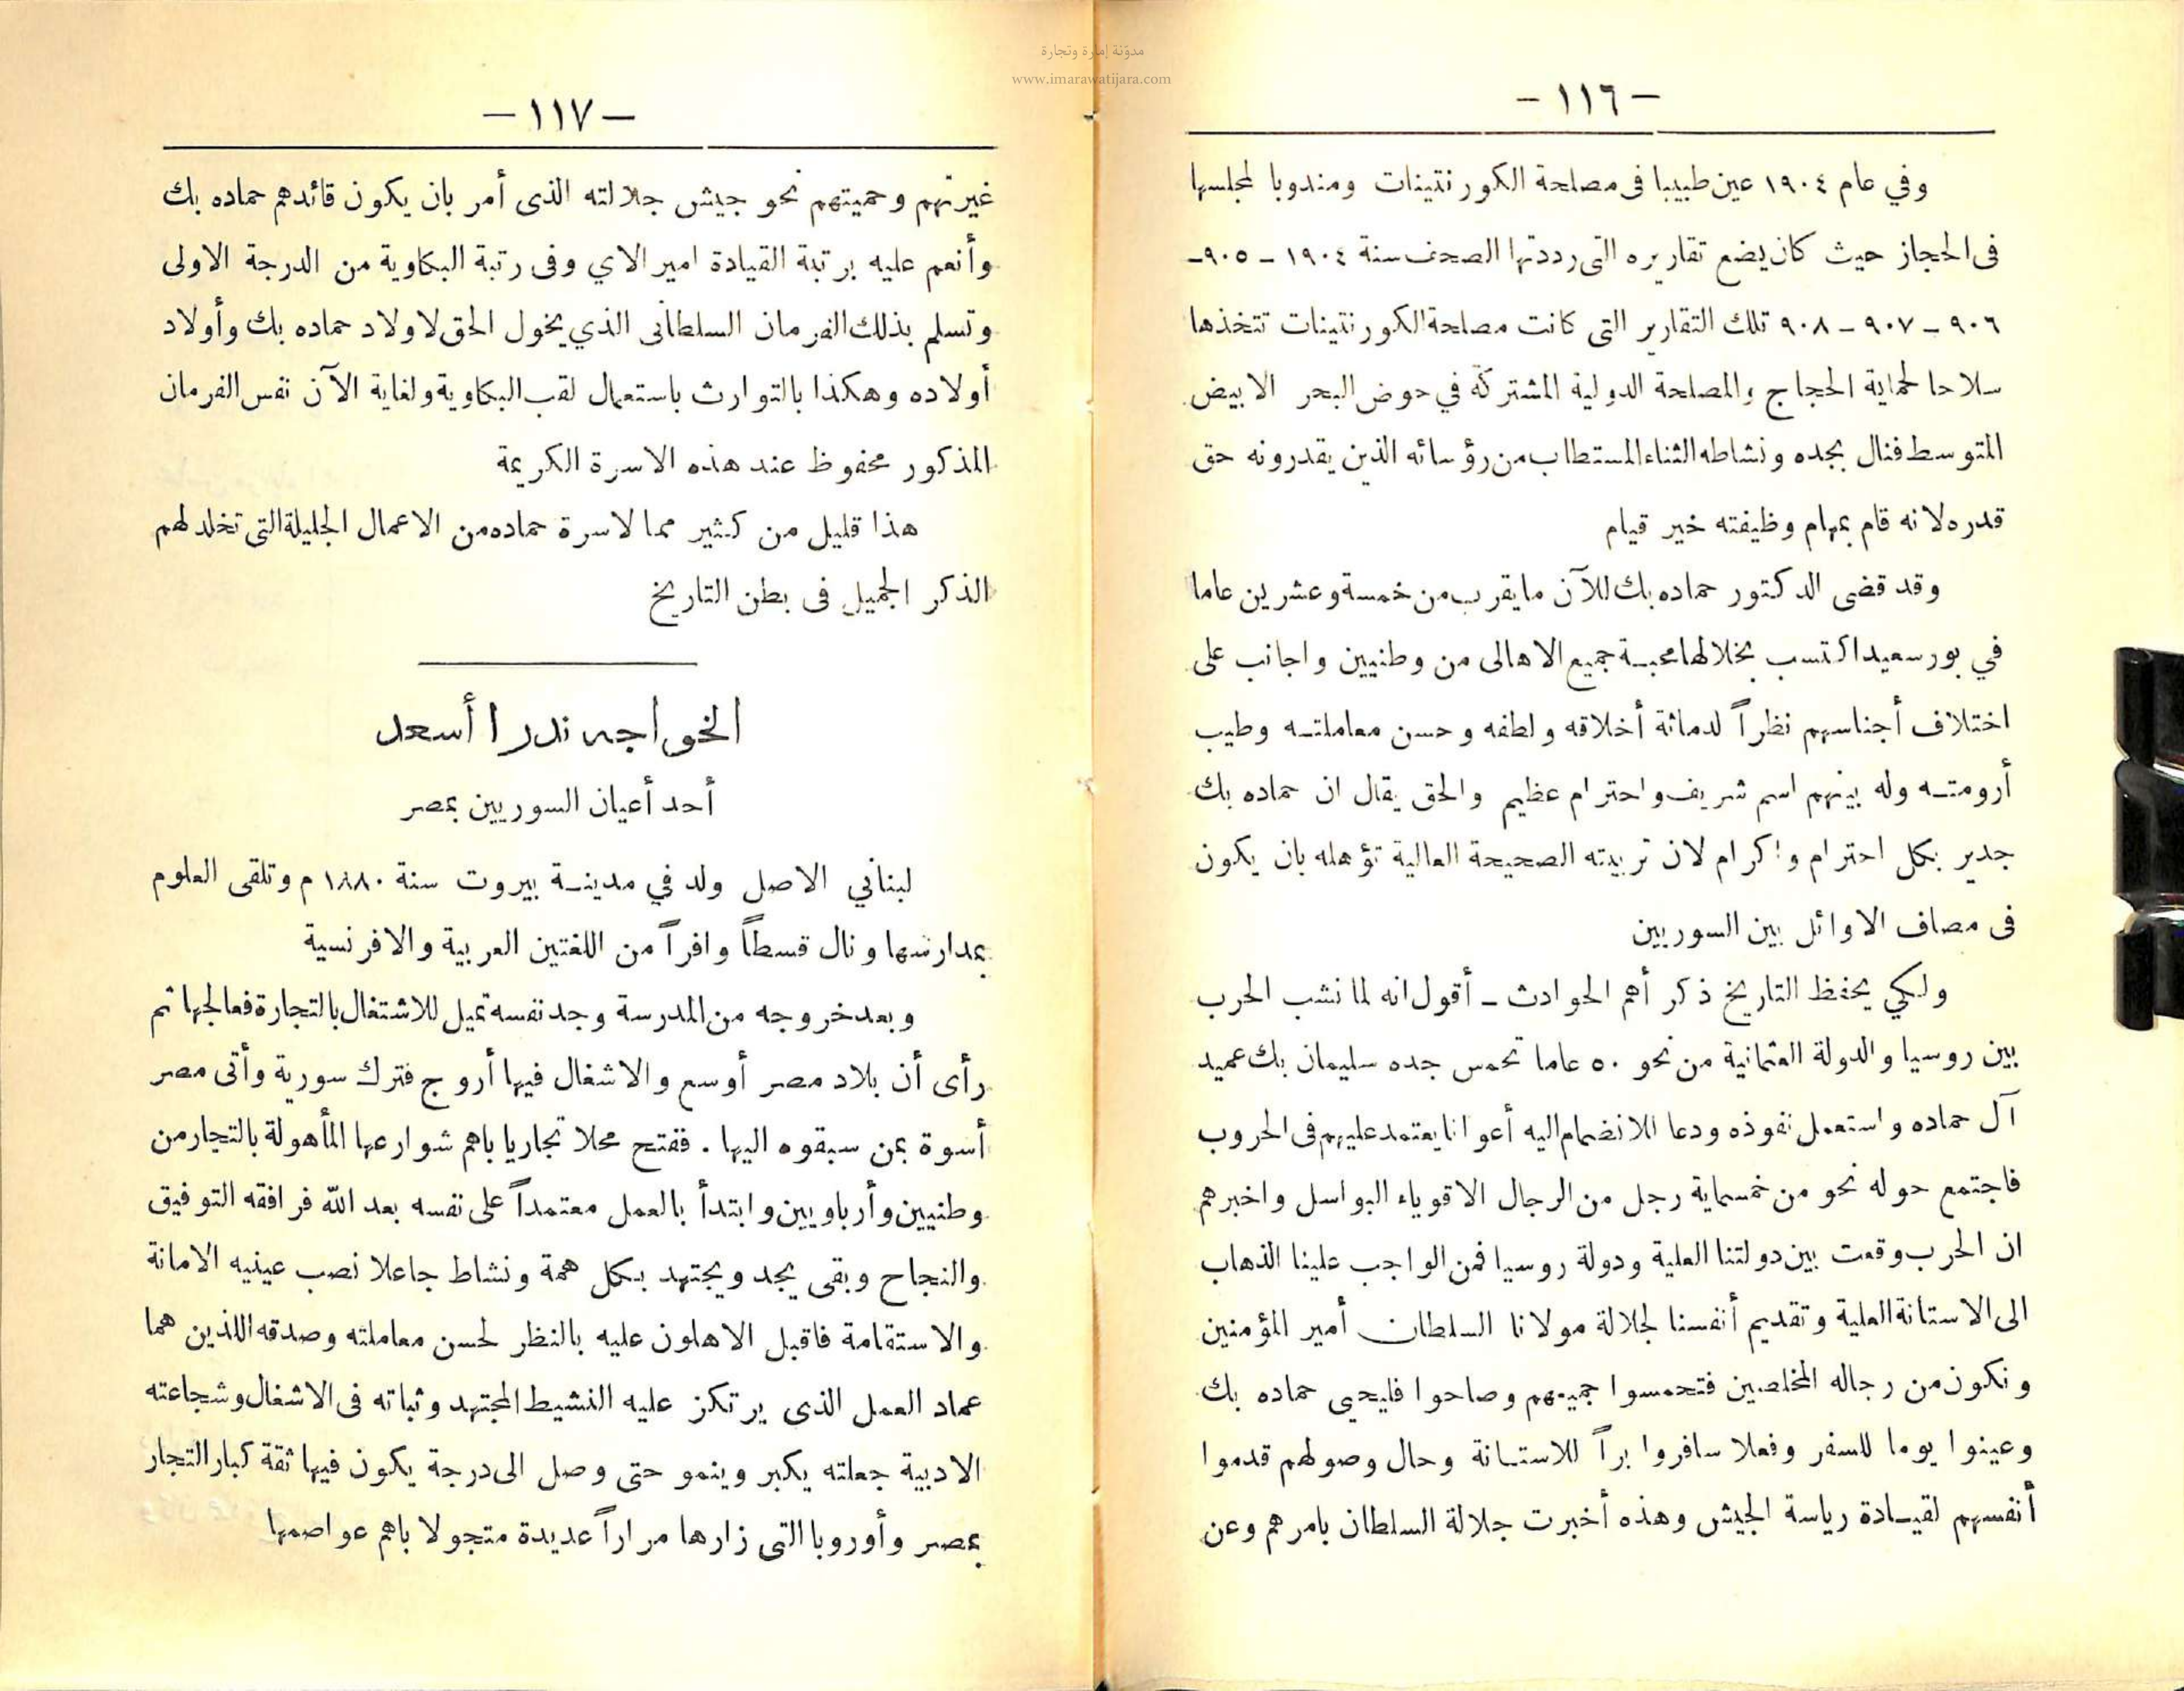 مدوّنة إمارة وتجارة
www.imarawatijara.com
— ١١٦ —
وفي عام ١٩٠٤ عين طبيبا فى مصلحة الكورنتينات ومندوبا لمجلسها
فى الحجاز حيث كان يضع تقاريره التى رددتها الصحف سنة ١٩٠٤ – ٩٠٥–
٩٠٦ – ٩٠٧ – ٩٠٨ تلك التقارير التى كانت مصلحة الكورنتينات تتخذها
سلاحا لحماية الحجاج والمصلحة الدولية المشتركة في حوض البحر الابيض
المتوسط فنال بجده ونشاطه الثناء المستطاب من رؤسائه الذين يقدرونه حق
قدره لانه قام بمهام وظيفته خير قيام
وقد قضى الدكتور حماده بك للآن مايقرب من خمسة وعشرين عاما
في بورسعيد اكتسب بخلالها محبة جميع الاهالى من وطنيين واجانب على
اختلاف أجناسهم نظراً لدماثة أخلاقه ولطفه وحسن معاملته وطيب
أرومته وله بينهم اسم شريف واحترام عظيم والحق يقال ان حماده بك
جدير بكل احترام واكرام لان تربيته الصحيحة العالية تؤهله بان يكون
فى مصاف الاوائل بين السوريين
ولكي يحفظ التاريخ ذكر أهم الحوادث – أقول انه لما نشب الحرب
بين روسيا والدولة العثمانية من نحو ٥٠ عاما تحمس جده سليمان بك عميد
آل حماده واستعمل نفوذه ودعا للانضمام اليه أعوانا يعتمد عليهم فى الحروب
فاجتمع حوله نحو من خمسماية رجل من الرجال الاقوياء البواسل واخبرهم
ان الحرب وقعت بين دولتنا العلية ودولة روسيا فمن الواجب علينا الذهاب
الى الاستانة العلية وتقديم أنفسنا لجلالة مولانا السلطان أمير المؤمنين
ونكون من رجاله المخلصين فتحمسوا جميعهم وصاحوا فليحيى حماده بك
وعينوا يوما للسفر وفعلا سافروا براً للاستانة وحال وصولهم قدموا
أنفسهم لقيادة رياسة الجيش وهذه أخبرت جلالة السلطان بامرهم وعن
— ١١٧ —
غيرتهم وحميتهم نحو جيش جلالته الذى أمر بان يكون قائدهم حماده بك
وأنعم عليه برتبة القيادة امير الاي وفى رتبة البكاوية من الدرجة الاولى
وتسلم بذلك الفرمان السلطانى الذي يخول الحق لاولاد حماده بك وأولاد
أولاده وهكذا بالتوارث باستعمال لقب البكاوية ولغاية الآن نفس الفرمان
المذكور محفوظ عند هذه الاسرة الكريمة
هذا قليل من كثير مما لاسرة حماده من الاعمال الجليلة التى تخلد لهم
الذكر الجميل فى بطن التاريخ
الخواجه ندرا أسعد
أحد أعيان السوريين بمصر
لبناني الاصل ولد في مدينة بيروت سنة ١٨٨٠ م وتلقى العلوم
بمدارسها ونال قسطاً وافراً من اللغتين العربية والافرنسية
وبعد خروجه من المدرسة وجد نفسه تميل للاشتغال بالتجارة فعالجها ثم
رأى أن بلاد مصر أوسع والاشغال فيها أروج فترك سورية وأتى مصر
أسوة بمن سبقوه اليها . ففتح محلا تجاريا باهم شوارعها المأهولة بالتجار من
وطنيين وأرباويين وابتدأ بالعمل معتمداً على نفسه بعد الله فرافقه التوفيق
والنجاح وبقى يجد ويجتهد بكل همة ونشاط جاعلا نصب عينيه الامانة
والاستقامة فاقبل الاهلون عليه بالنظر لحسن معاملته وصدقه اللذين هما
عماد العمل الذى يرتكز عليه النشيط المجتهد وثباته فى الاشغال وشجاعته
الادبية جعلته يكبر وينمو حتى وصل الى درجة يكون فيها ثقة كبار التجار
بمصر وأوروبا التى زارها مراراً عديدة متجولا باهم عواصمها